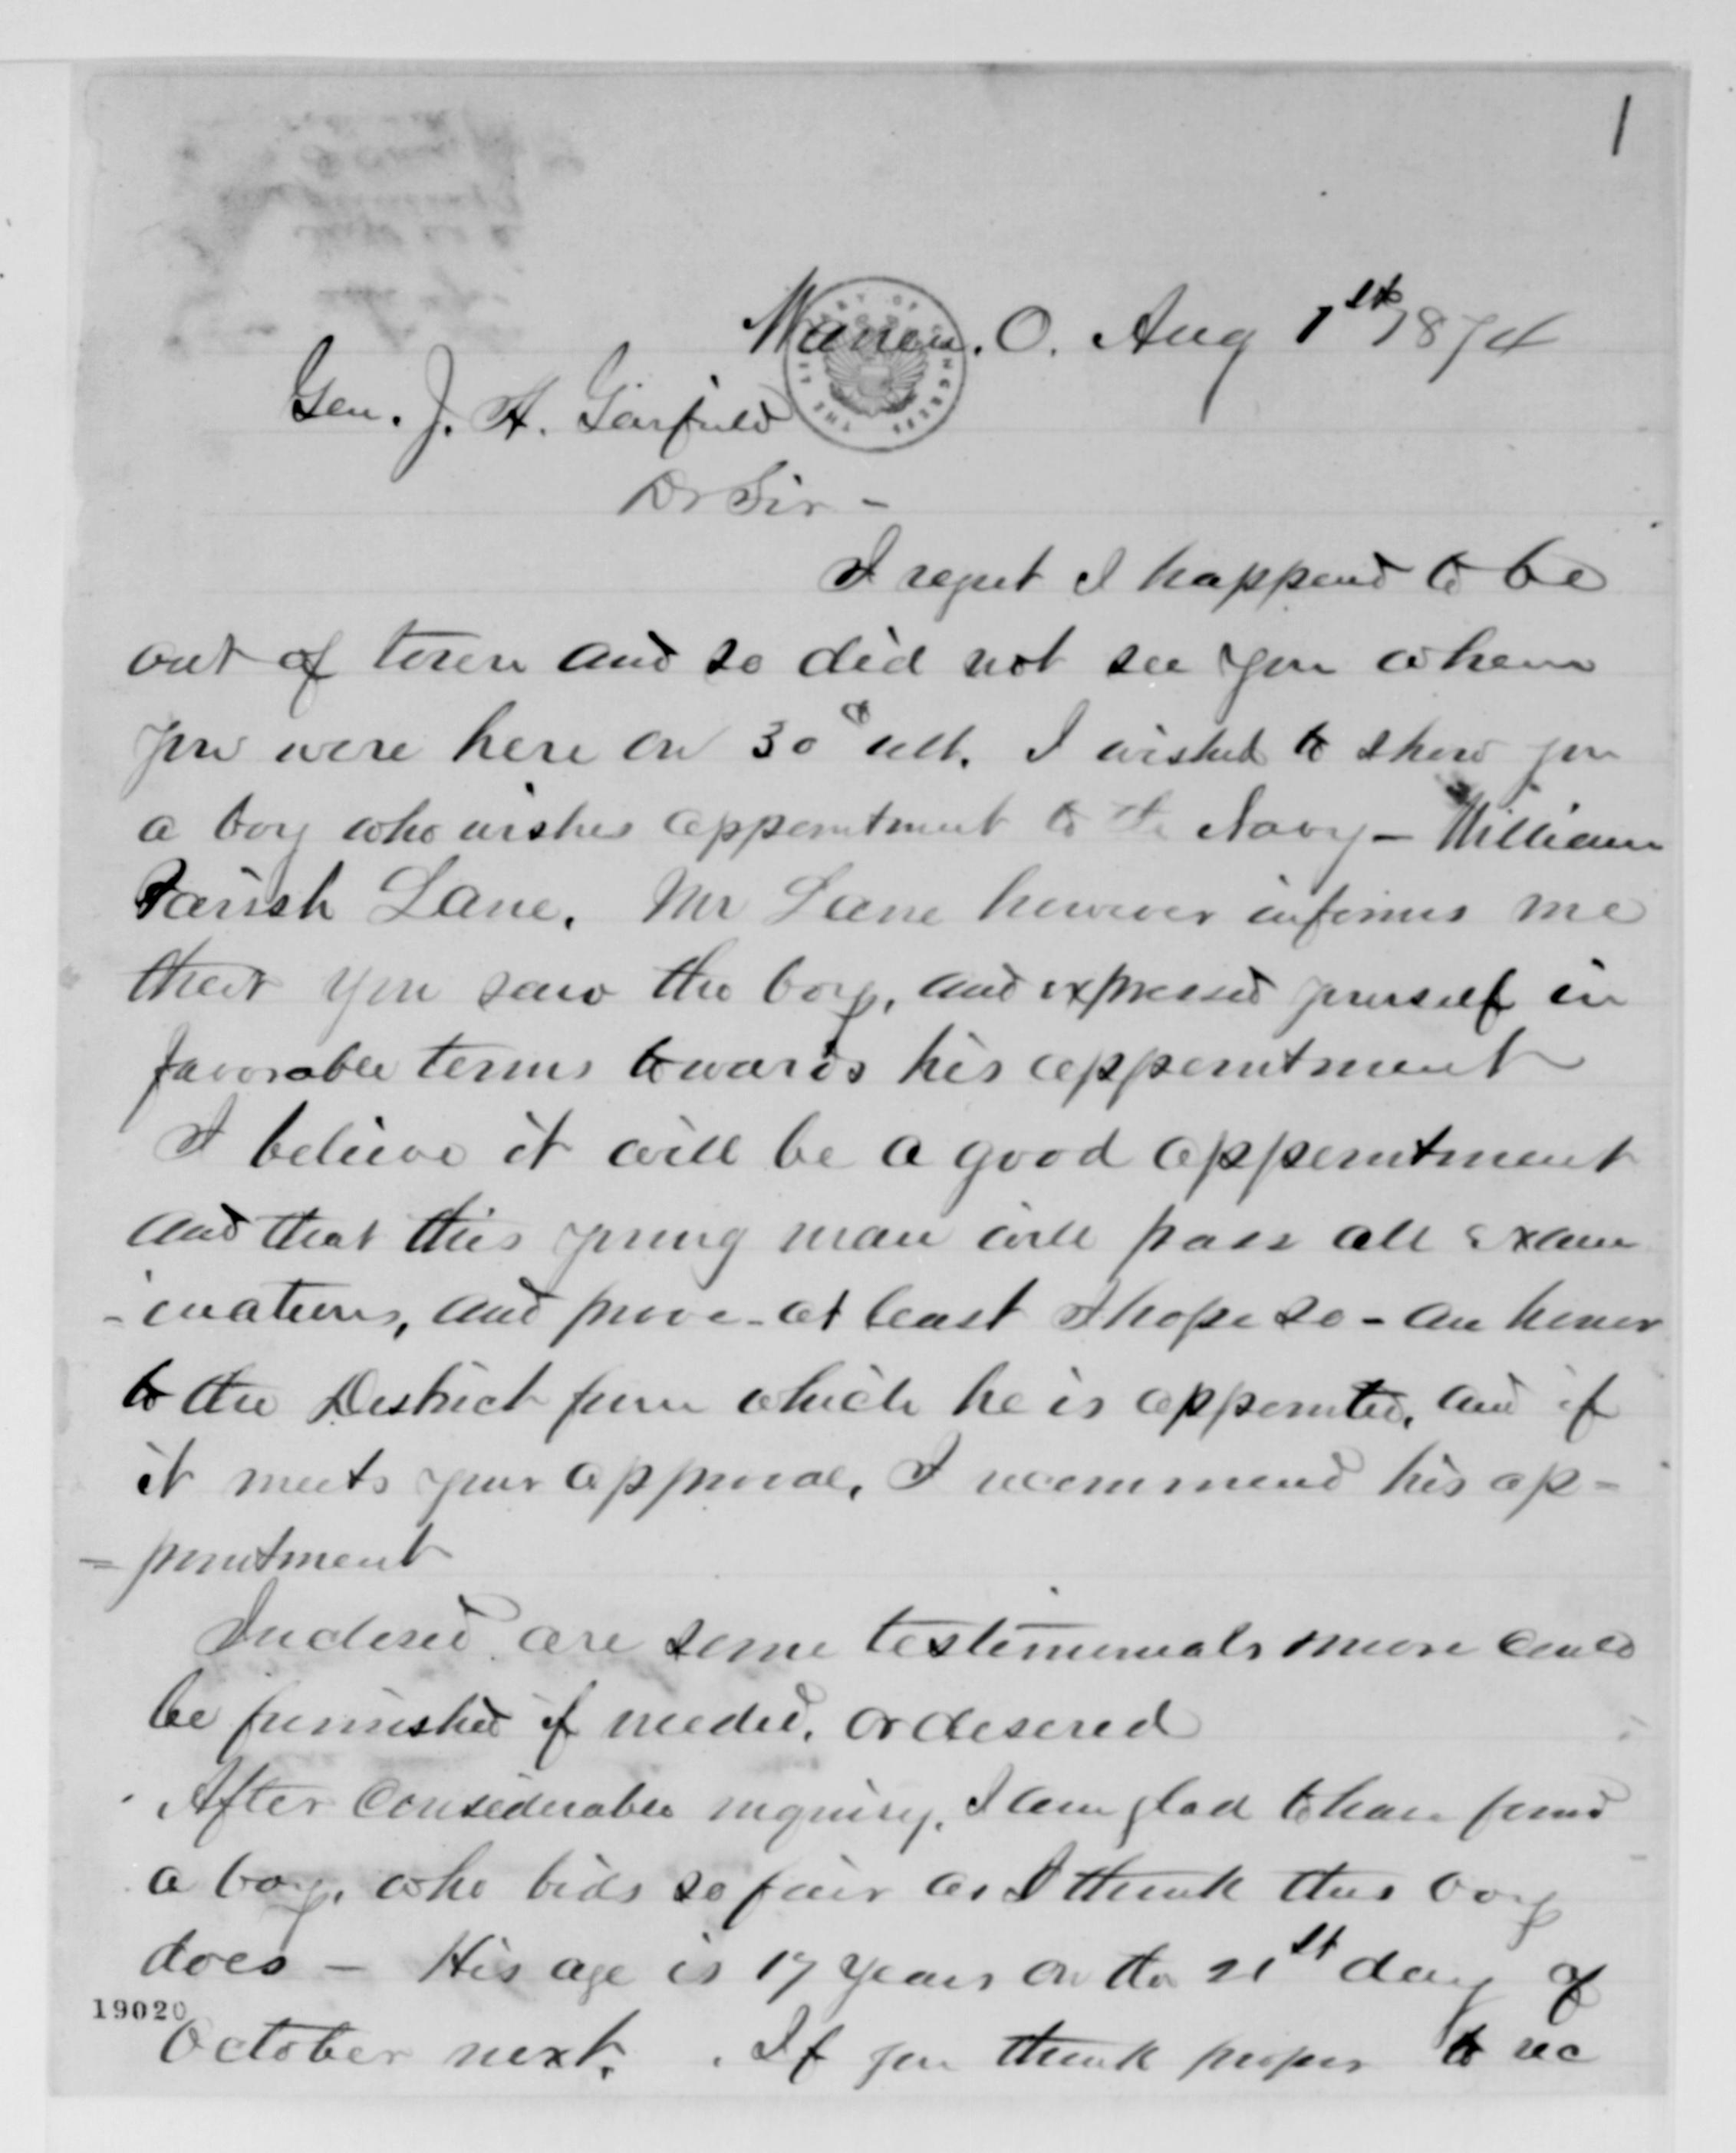 1
Warren. O. Aug 1st 1874
Gen. J. A. Garfield
Dr Sir -
I regret I happend to be
out of town and so did not see you when
you were here on 30th ult. I wished to show you
a boy who wishes appointment to the Navy - William
Parish Lane. Mr Lane however informs me
that you saw the boy, and expressed yourself in
favorable terms towards his appointment
I believe it will be a good appointment
and that this young man will pass all exam
- inations, and prove - at least I hope so - an honor
to the District from which he is appointed, and if
it meets your approval, I recommend his ap -
= pointment
Inclosed are some testimonials more could
be furnished if needed, or desired
After considerable inquiry, I am glad to have found
a boy, who bids so fair as I think this boy
does - His age is 17 years on the 21st day of
19020
October next. . If you think proper to rec
THE LIBRARY OF CONGRESS